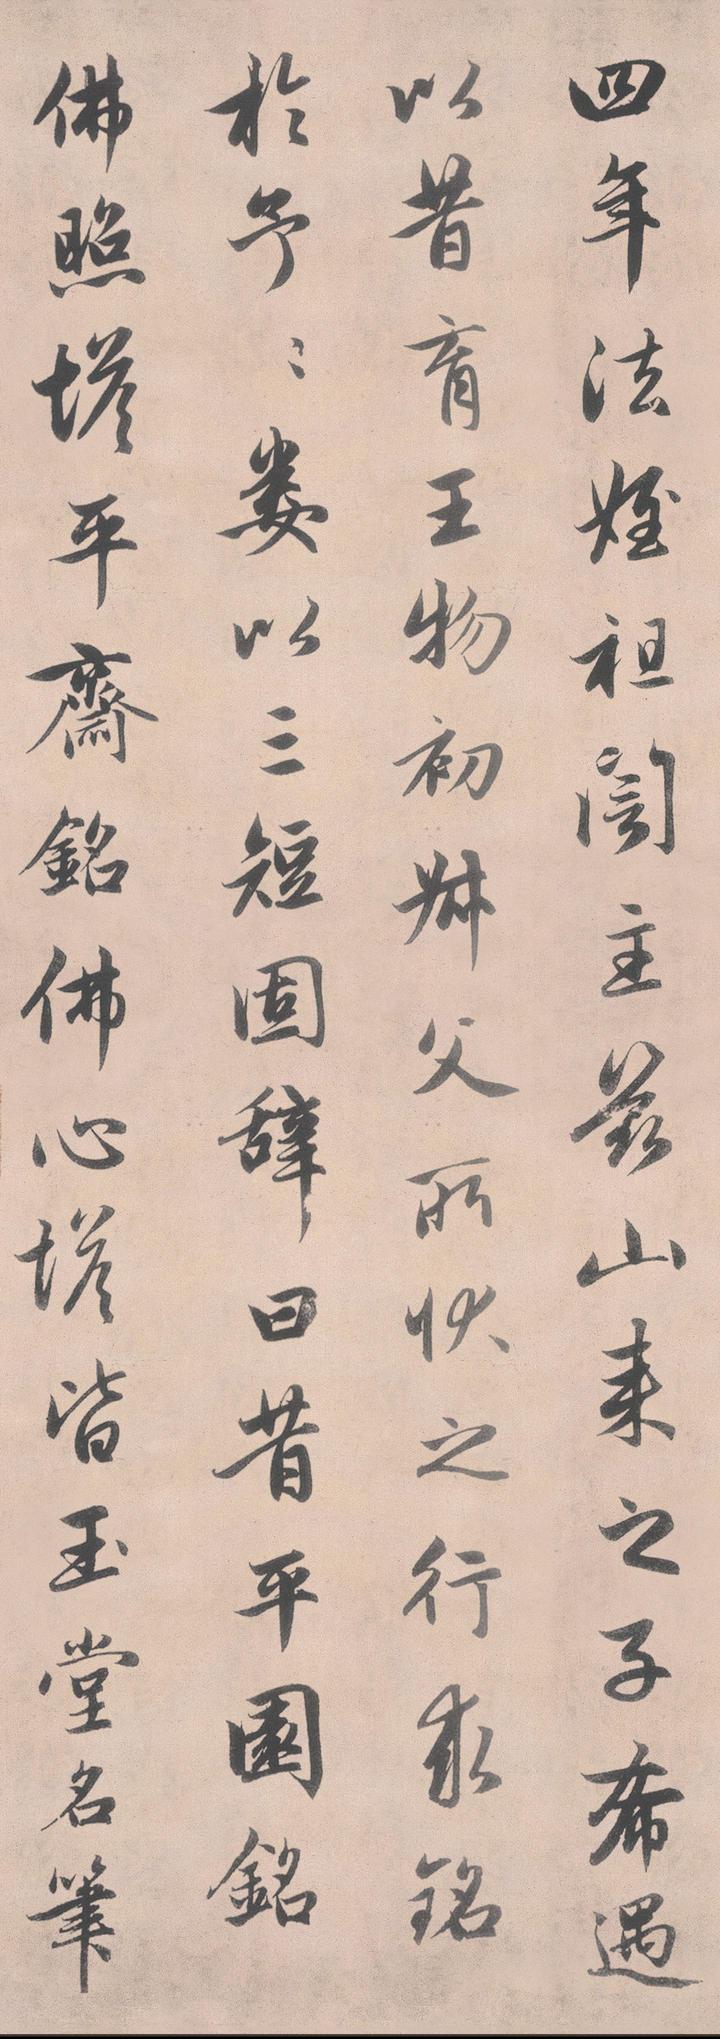 四年法姪祖誾主茲山來之子希遇
以昔育王物初叔父所狀之行求銘
於予〻婁以三短固辭曰昔平園銘
佛照塔平齋銘佛心塔皆玉堂名筆